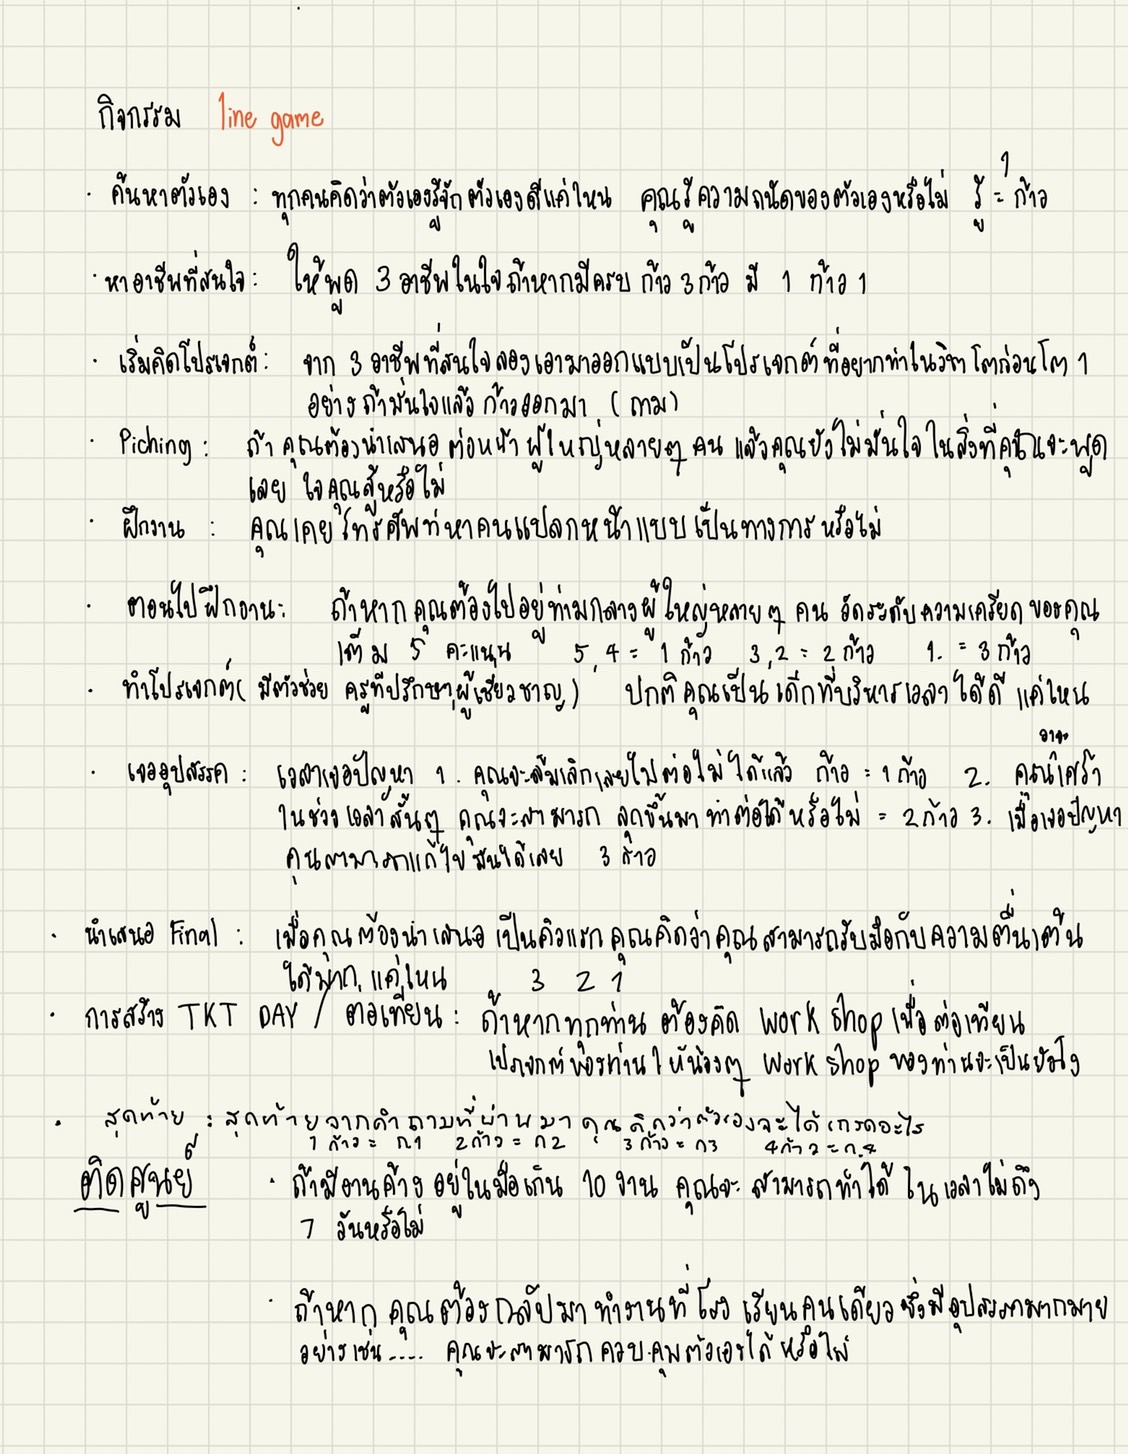 กิจกรรม line game
· ค้นหาตัวเอง : ทุกคนคิดว่าตัวเองรู้จักตัวเองดีแค่ใหน คุณรู้ความถนัดของตัวเองหรือไม่ รู้ = 1 ก้าว
· หาอาชีพที่สนใจ : ให้พูด 3 อาชีพในใจถ้าหากมีครบ ก้าว 3 ก้าว มี 1 ก้าว 1
· เริ่มคิดโปรเจกต์ : จาก 3 อาชีพที่สนใจลองเอามาออกแบบเป็นโปรเจกต์ ที่อยากทำในวิชา โตก่อนโต 1
อย่าง ถ้ามั่นใจแล้ว ก้าวออกมา ( ถาม )
· Piching : ถ้า คุณต้องนำเสนอ ต่อหน้า ผู้ใหญ่หลายๆ คน แล้วคุณยังไม่มั่นใจ ในสิ่งที่คุณจะพูด
เลย ใจคุณสู้หรือไม่
· ฝึกงาน : คุณเคย โทรศัพท์หาคนแปลกหน้าแบบ เป็นทางการ หรือไม่
· ตอนไปฝึกงาน : ถ้าหาก คุณต้องไปอยู่ท่ามกลางผู้ใหญ่หลายๆ คน วัดระดับความเครียด ของคุณ
เต็ม 5 คะแนน 5,4 = 1 ก้าว 3,2 = 2 ก้าว 1. = 3 ก้าว
· ทำโปรเจกต์ ( มีตัวช่วย ครูที่ปรึกษา,ผู้เชี่ยวชาญ ) ปกติ คุณเป็น เด็กที่บริหารเวลา ได้ดี แค่ใหน
· เจออุปสรรค : เวลาเจอปัญหา 1. คุณจะล้มเลิกเลยไปต่อไม่ ได้แล้ว ก้าว = 1 ก้าว 2. คุณอาจเศร้า
ในช่วง เวลาสั้นๆ คุณจะสามารถ ลุกขึ้นมา ทำต่อได้หรือไม่ = 2 ก้าว 3. เมื่อเจอปัญหา
คุณสามารถแก้ไขมันได้เลย 3 ก้าว
· นำเสนอ Final : เมื่อคุณต้องนำเสนอ เป็นคิวแรก คุณคิดว่าคุณสามารถรับมือกับความตื่นเต้น
ได้มาก แค่ใหน 3 2 1
· การสร้าง TKT DAY / ต่อเทียน : ถ้าหากทุกท่าน ต้องคิด Work shop เพื่อต่อเทียน
โปรเจกต์ของท่าน ให้น้องๆ Work shop ของท่านจะเป็นยังไง
· สุดท้าย : สุดท้ายจากคำถามที่ผ่านมา คุณคิดว่าตัวเองจะได้เกรดอะไร
1 ก้าว = ก.1 2 ก้าว = ก2 3 ก้าว = ก3 4 ก้าว = ก.4
ติดศูนย์ · ถ้ามีงานค้าง อยู่ในมือเกิน 10 งาน คุณจะ สามารถทำได้ ในเวลาไม่ถึง
7 วันหรือไม่
· ถ้าหาก คุณต้องกลับมา ทำงานที่ โรงเรียนคนเดียว ซึ่งมีอุปสรรคมากมาย
อย่างเช่น..... คุณจะสามารถ ควบคุมตัวเองได้ หรือไม่